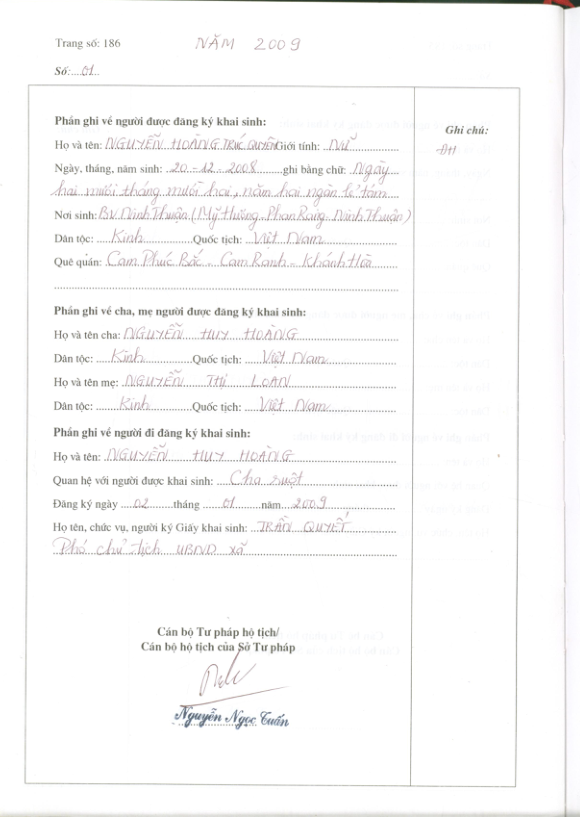 Trang số: 186 NĂM 2009
Số: 01
Phần ghi về người được đăng ký khai sinh:
Ghi chú:
Họ và tên: NGUYỄN HOÀNG TRÚC QUYÊN Giới tính: NỮ
Ngày, tháng, năm sinh: 20-12-2008 ghi bằng chữ: Ngày
hai mươi tháng mười hai, năm hai ngàn lẻ tám
Nơi sinh: BV Ninh Thuận (Mỹ Hương, Phan Rang, Ninh Thuận)
Dân tộc: Kinh Quốc tịch: Việt Nam
Quê quán: Cam Phúc Bắc - Cam Ranh - Khánh Hòa
Phần ghi về cha, mẹ người được đăng ký khai sinh:
Họ và tên cha: NGUYỄN HUY HOÀNG
Dân tộc: Kinh Quốc tịch: Việt Nam
Họ và tên mẹ: NGUYỄN THỊ LOAN
Dân tộc: Kinh Quốc tịch: Việt Nam
Phần ghi về người đi đăng ký khai sinh:
Họ và tên: NGUYỄN HUY HOÀNG
Quan hệ với người được khai sinh: Cha ruột
Đăng ký ngày 02 tháng 01 năm 2009
Họ tên, chức vụ, người ký Giấy khai sinh: TRẦN QUYẾT
Phó chủ tịch UBND xã
Cán bộ Tư pháp hộ tịch/
Cán bộ hộ tịch của Sở Tư pháp
Nguyễn Ngọc Tuấn